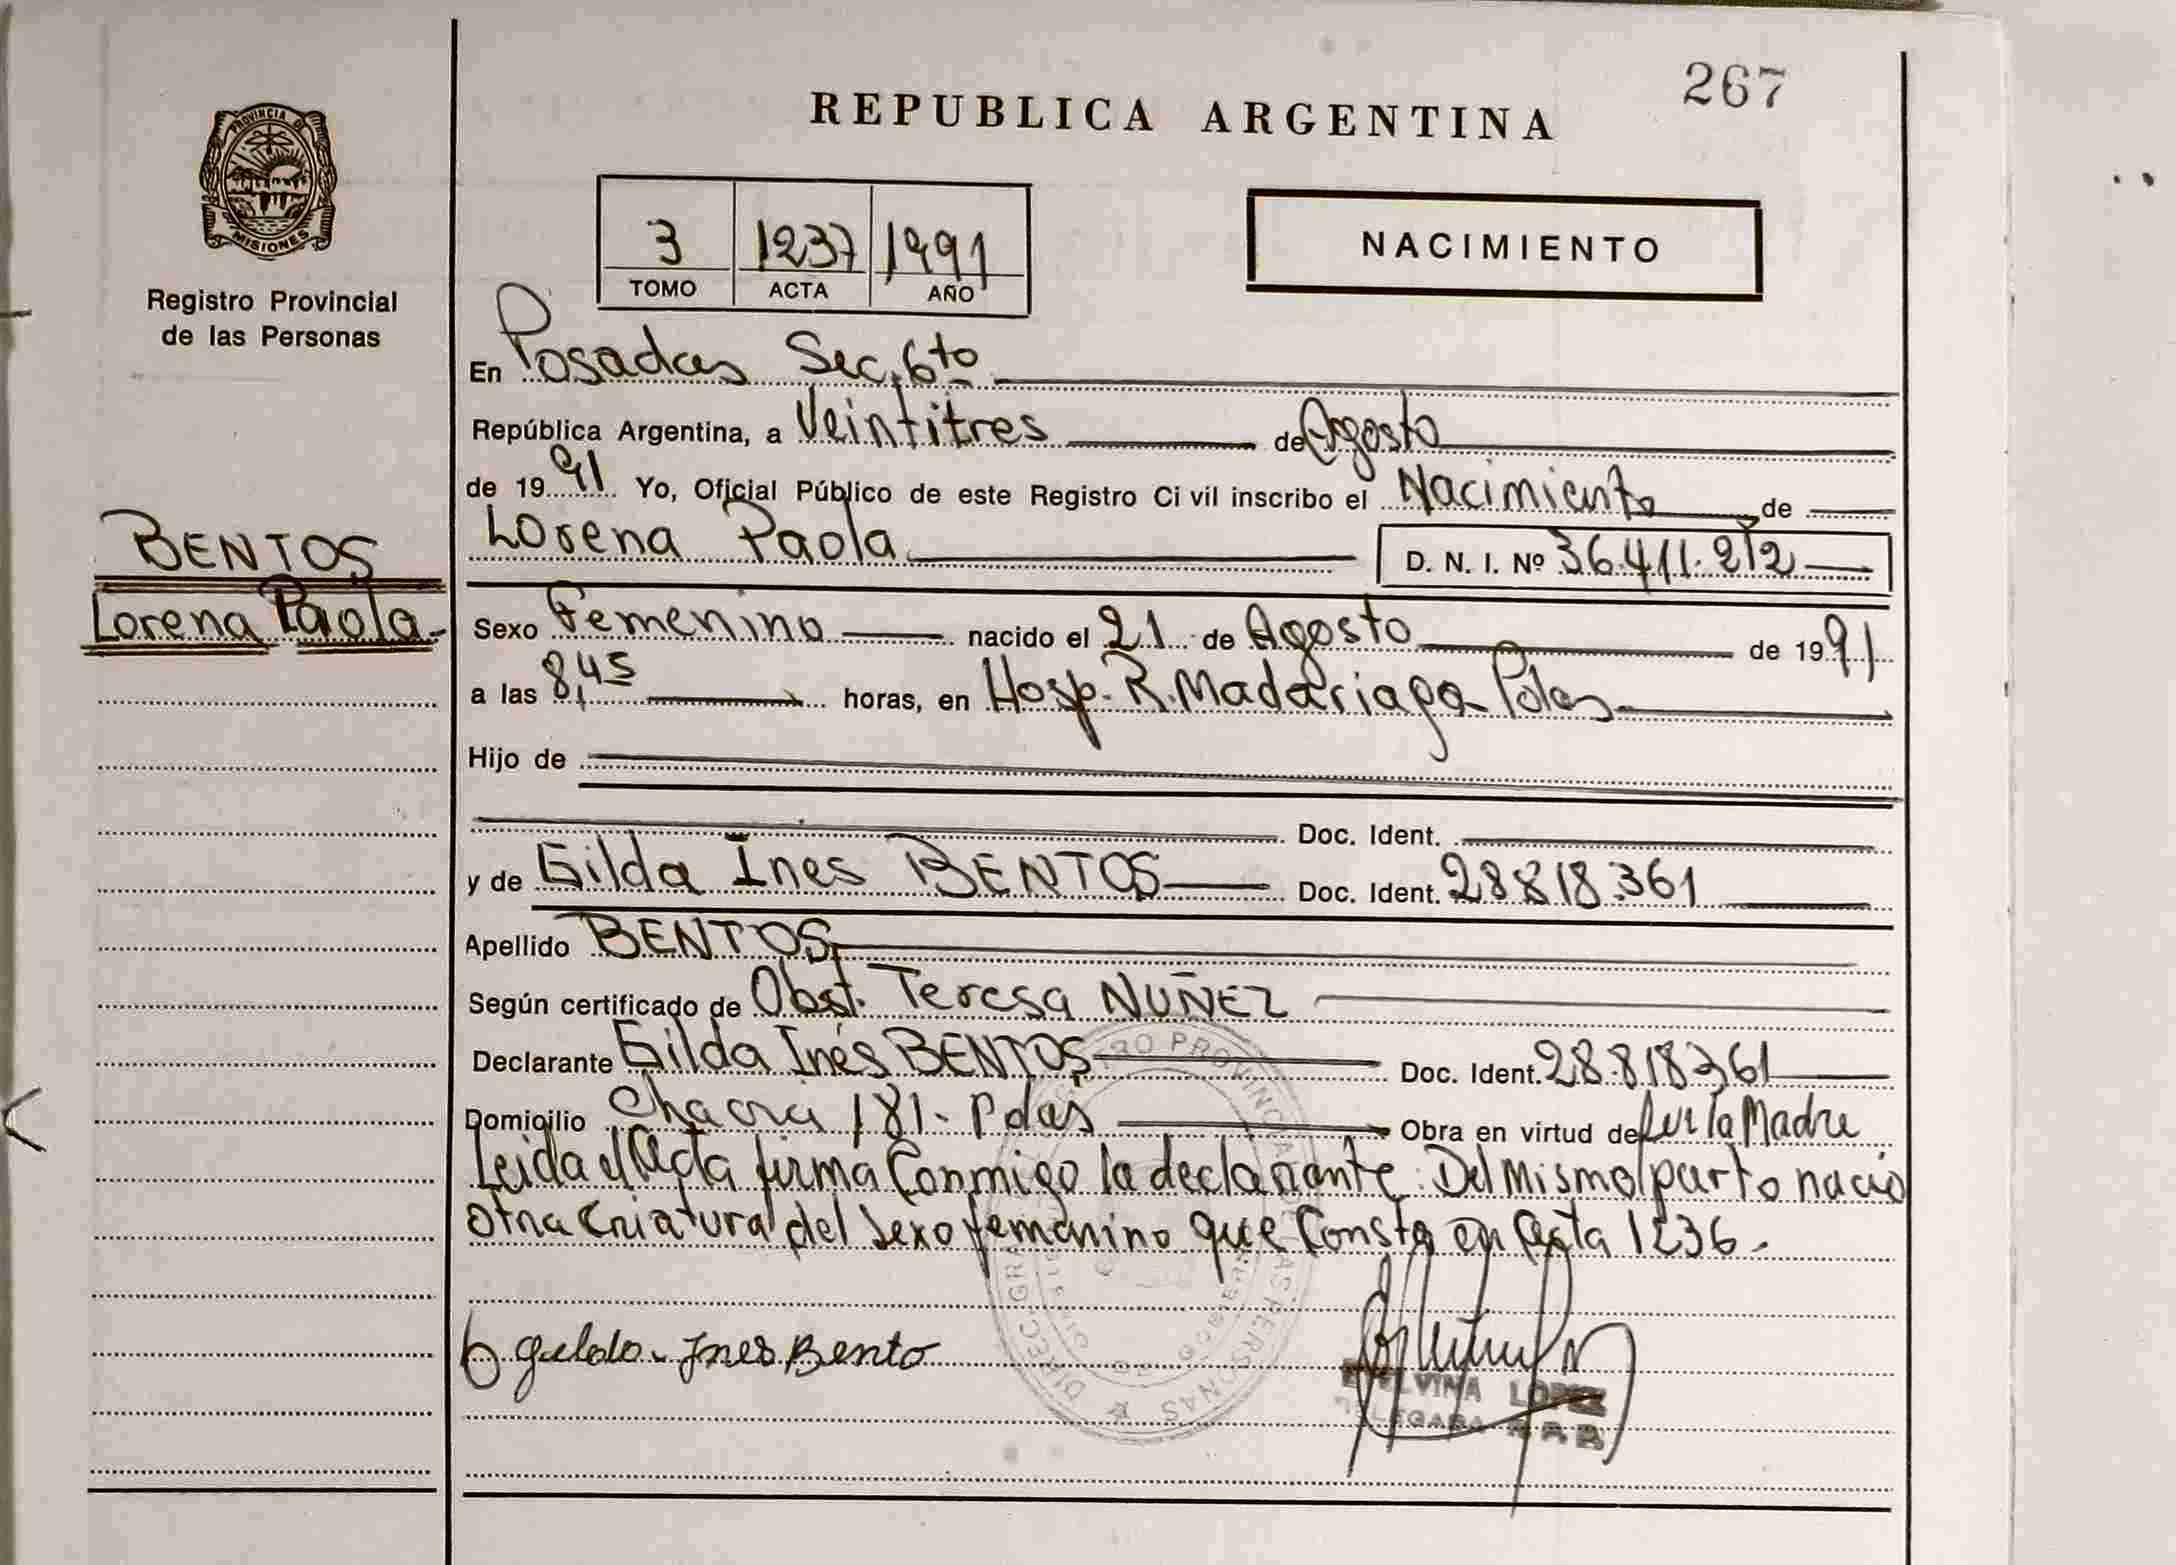 267
REPUBLICA ARGENTINA
PROVINCIA DE
MISIONES
Registro Provincial
de las Personas
3 1237 1991
TOMO ACTA AÑO
NACIMIENTO
En Posadas Sec. 6to
República Argentina, a Veintitres de Agosto
de 1991 Yo, Oficial Público de este Registro Civil inscribo el Nacimiento de
Lorena Paola D. N. I. Nº 36.411.212
BENTOS
Lorena Paola.
Sexo Femenino nacido el 21 de Agosto de 1991
a las 8,45 horas, en Hosp. R. Madariaga Pdas
Hijo de
Doc. Ident.
y de Gilda Ines BENTOS Doc. Ident. 28818.361
Apellido BENTOS
Según certificado de Obst. Teresa NUÑEZ
Declarante Gilda Inés BENTOS Doc. Ident. 28.818361
Domicilio Chacra 181- Pdas Obra en virtud de ser la Madre
Leida el Acta firma Conmigo la declarante. Del Mismo parto nacio
otra Criatura del Sexo femenino que Consta en Acta 1236.
Ines Bento
LOPEZ